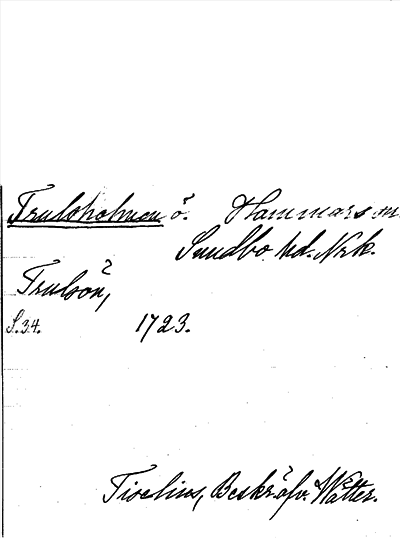 Trulsholmen ö. Hammars sn.
Sundbo hd. Nrk.
Trulsön,
S.34. 1723.
Tiselius, Beskr. öfv. Wätter.